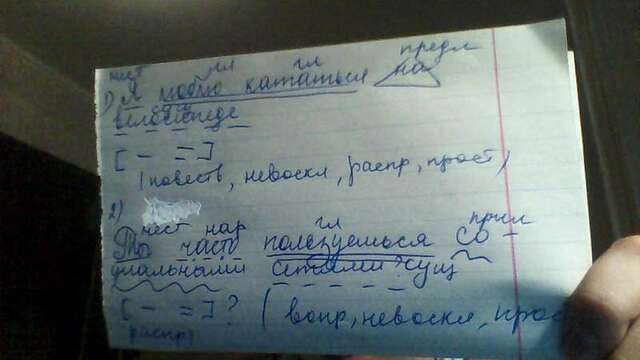 мест гл гл предл
1) Я люблю кататься на
сущ
велосипеде
[ – = ]
(повеств, невоскл, распр, прост)
2)
мест нар гл прил
Ты часто ползуешься со
циальными сетями? сущ
[ – = ] ? ( вопр, невоскл, прос
распр)